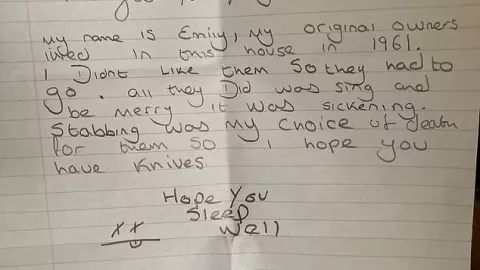 my name is Emily, my original owners
lived in this house in 1961.
I Didnt Like them So they had to
go. all they Did was sing and
be merry it was sickening.
Stabbing was my choice of death
for them So I hope you
have Knives
Hope You
Sleep
Well
XX